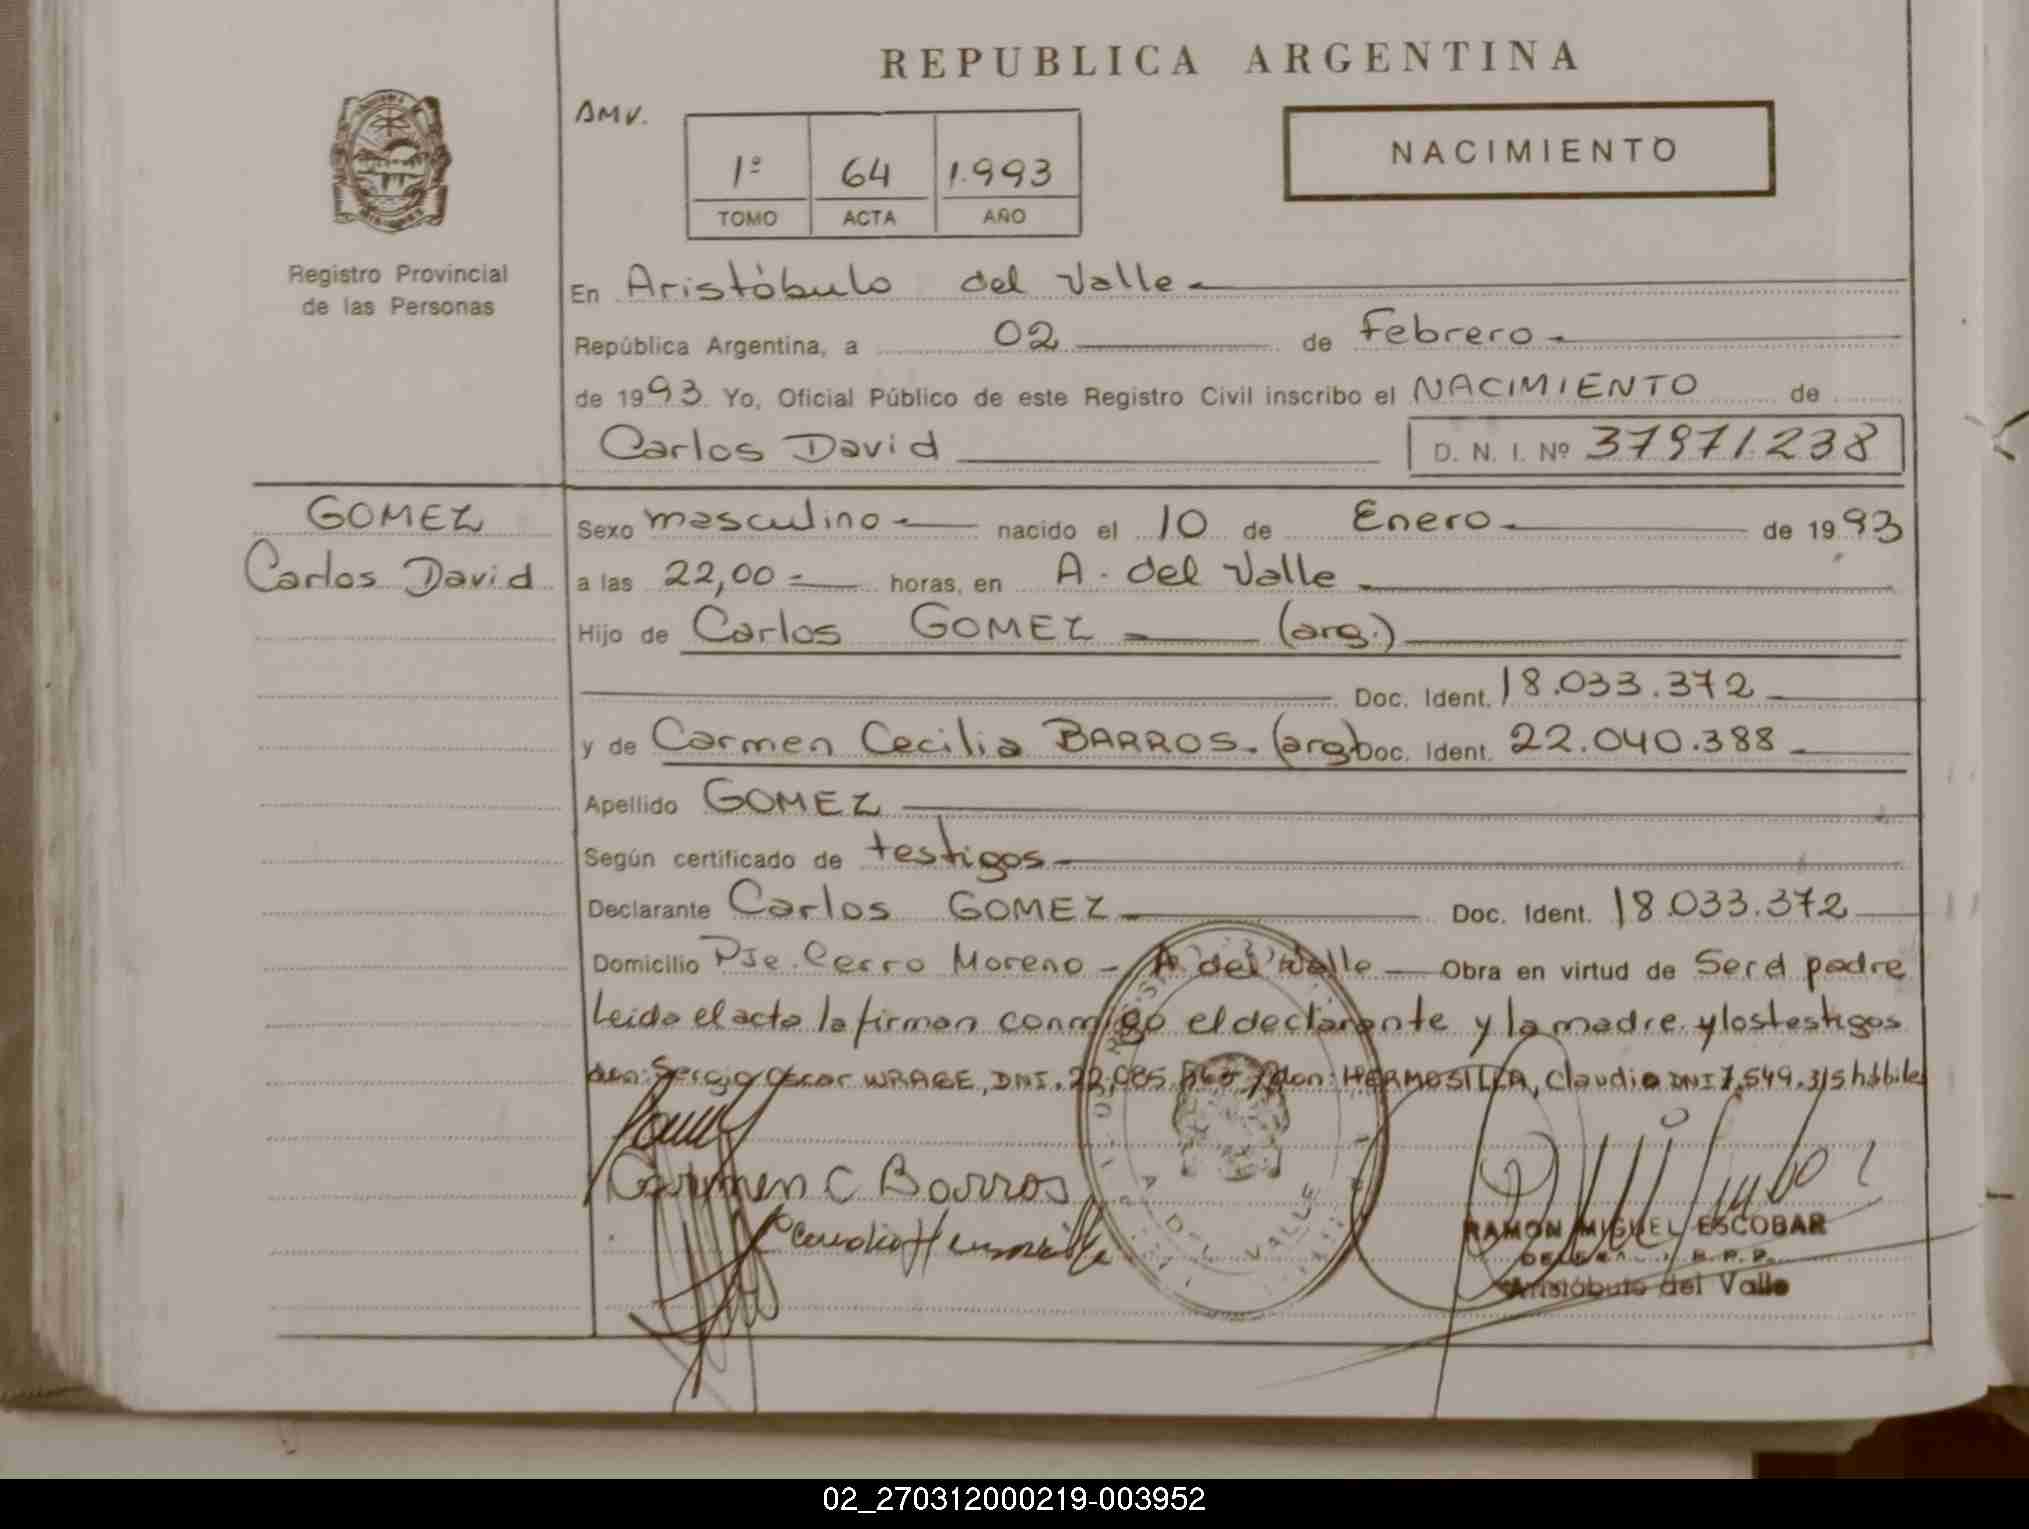 REPUBLICA ARGENTINA
AMV.
1º 64 1.993
TOMO ACTA AÑO
NACIMIENTO
Registro Provincial
de las Personas
En Aristóbulo del Valle
República Argentina, a 02 de Febrero
de 1993 Yo, Oficial Público de este Registro Civil inscribo el NACIMIENTO de
Carlos David D. N. I. Nº 37971.238
GOMEZ
Carlos David
Sexo masculino nacido el 10 de Enero de 1993
a las 22,00 horas, en A. del Valle
Hijo de Carlos GOMEZ (arg.)
Doc. Ident. 18.033.372
y de Carmen Cecilia BARROS. (arg) Doc. Ident. 22.040.388
Apellido GOMEZ
Según certificado de testigos
Declarante Carlos GOMEZ Doc. Ident. 18.033.372
Domicilio Pje. Cerro Moreno - A. del Valle Obra en virtud de Ser el padre
Leida el acta la firman conmigo el declarante y la madre y los testigos
don: Sergio Oscar WRAGE, DNI. 22.085. y don: HERMOSILLA, Claudio DNI 7.549.315 hábiles
Carmen C Barros
Claudio Hermosilla
DEL VALLE
RAMON MIGUEL ESCOBAR
R. P. P.
Aristóbulo del Valle
02_270312000219-003952